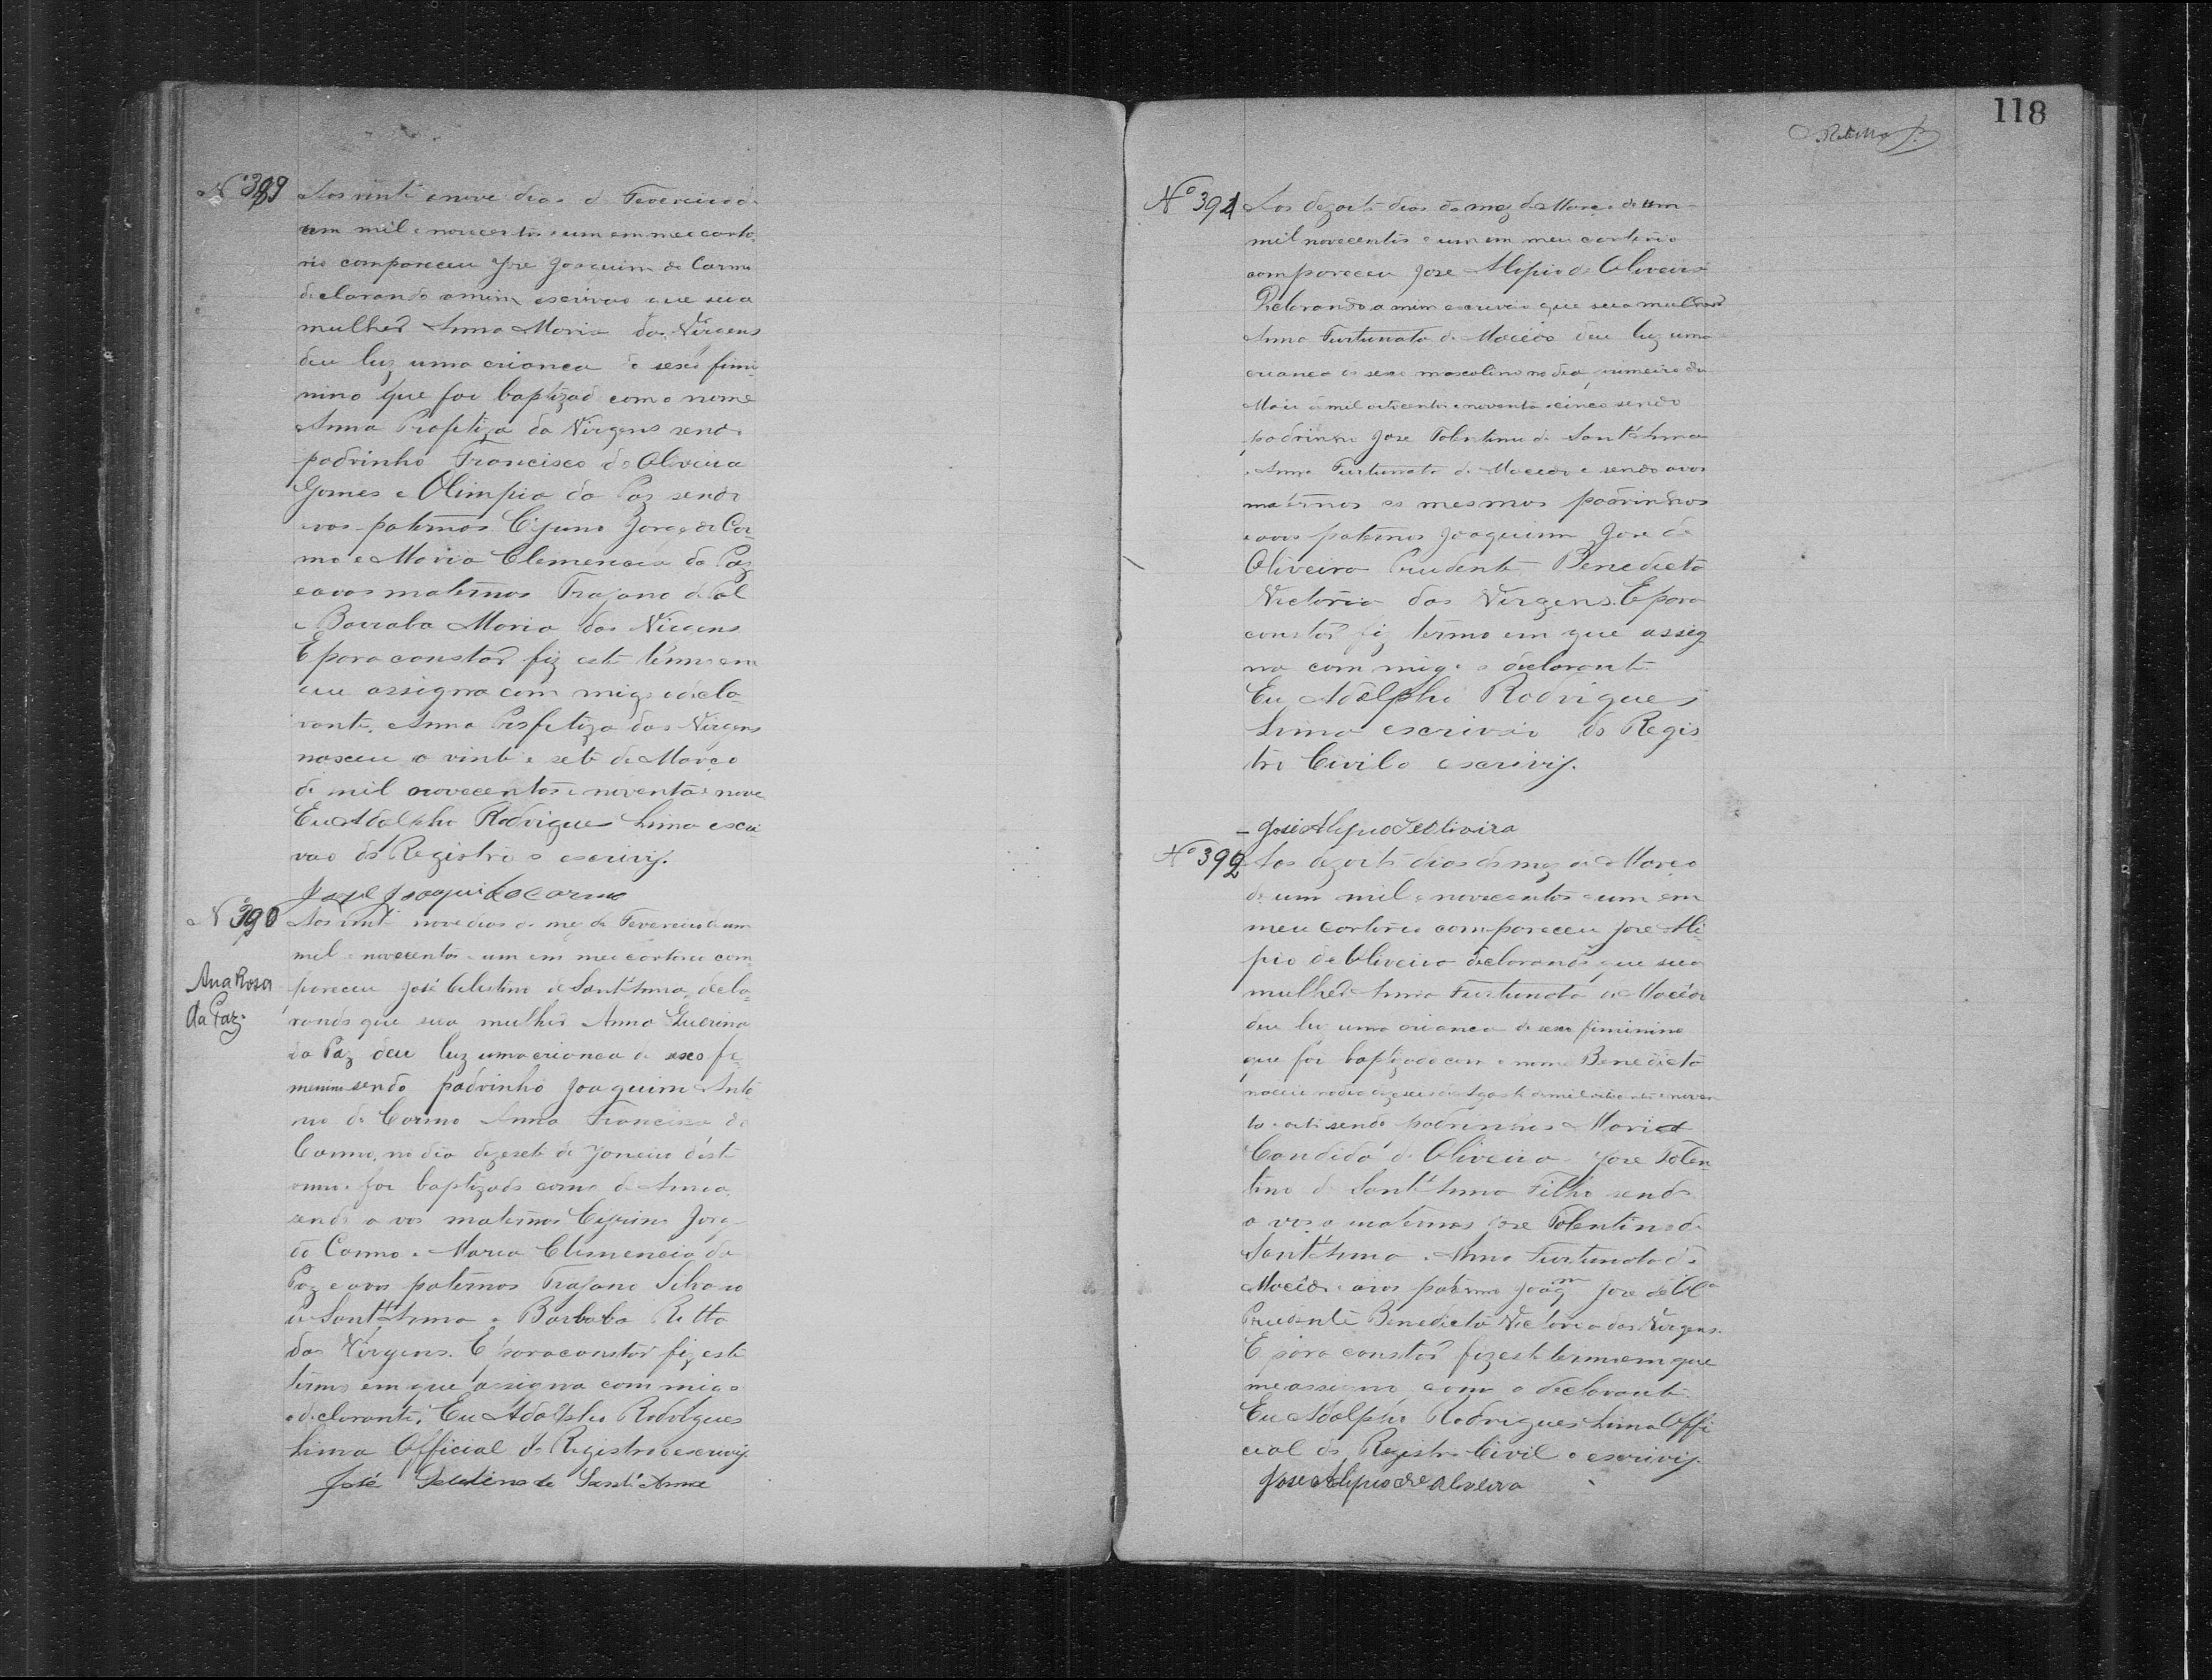 Nº 389
Aos vinte e nove dias de Fevereiro de
um mil e novecentos e um em meu carto
rio compareceu Jose Joaquim do Carmo
declarando a mim escrivao que sua
mulher Anna Maria das Virgens
deu luz uma crianca de sexo fimi
nino que foi baptizad com o nome
Anna Profetiza da Virgens send
padrinho Francisco de Oliveira
Gomes e Olimpia da Paz sendo
avos paternos Jorge do Car
mo e Maria Clemencia da Paz
e avos maternos Trajano
e Maria das Virgens
E para constar fiz este termo em
que assigna com migo o decla
rante. Anna Profetiza das Virgens
nasceu a vinte e sete de Março
de mil novecentos e noventa e nove
Eu Adolpho Rodrigues Lima escri
vao do Registro o escrivy.
José Joaqui do Carmo
Nº 390
Ana Rosa
da Paz.
Aos vinte nove dias do mez de Fevereiro de um
mil e novecentos e um em meu cartorio com
pareceu José Celestino de Sant'Anna decla
rando que sua mulher Anna Guerina
da Paz deu luz uma crianca de sexo fe
menino sendo padrinho Joaquim Anto
nio do Carmo Anna Francisca do
Carmo, no dia dezesete de Janeiro deste
anno foi baptizado como de Anna
sendo a vos maternos Cyprino Jorge
do Carmo e Maria Clemencia da
Paz e avos paternos Trajano
de Sant'Anna e Barbaba Ritta
das Virgens. E para constar fiz este
termo em que assigna com migo
o declarante. Eu Adolpho Rodrigues
Lima Official do Registro o escrivy.
José Selestino de Santi Anna
118
Nº 391
Aos dezoito dias do mez de Março de um
mil novecentos e um em meu cartorio
compareceu Jose Alipio de Oliveira
Declarando a mim escrivão que sua mulher
Anna Furtunata de Macêdo deu luz uma
crianca do sexo mascolino no dia primeiro de
Maio de mil oitocentos e noventa e cinco sendo
padrinho Jose Tolentino de Sant'Anna
e Anna Furtunata de Macedo e sendo avos
maternos os mesmos padrinhos
e avos paternos Joaquim Jose de
Oliveira Prudente Benedicta
Victoria das Virgens. E para
constar fiz termo em que assig
na com migo o declarante
Eu Adolpho Rodrigues
Lima escrivão do Regis
tro Civil o escrivy.
José Alipio de Oliveira
Nº 392
Aos dezoito dias do mez de Março
de um mil e novecentos e um em
meu cartorio compareceu Jose Ali
pio de Oliveira declarando que sua
mulher Anna Furtunata de Macêdo
deu luz uma crianca de sexo fiminino
que foi baptizada com o nome Benedicta
nasceu no dia dezeseis de Agosto de mil oitocentos e noven
ta e oito sendo padrinhos Maria
Candida de Oliveira Jose Tolen
tino de Sant'Anna Filho sendo
a vos maternos Jose Tolentino de
Sant'Anna e Anna Furtunata de
Macêdo e avos paterno Joaqm Jose de Olª
Prudente Benedicta Victoria das Virgens.
E para constar fiz este termo em que
me assigno com o declarante.
Eu Adolpho Rodrigues Lima Offi
cial do Registro Civil o escrivy.
Jose Alipio de Oliveira